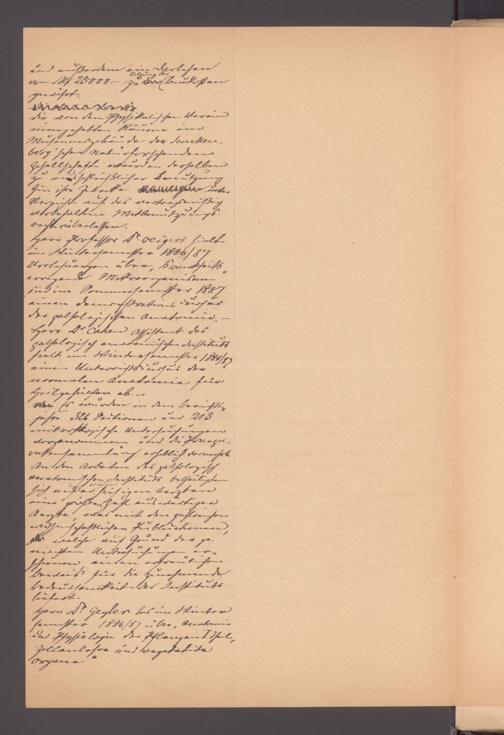 und außerdem ein Darlehen
von M 25000.– zu den Baukosten
gewährt.
die von dem Physikalischen Verein
innegehabten Räume im
Museumsgebäude der Sencken-
berg'schen naturforschenden
Gesellschaft wurden derselben
zu ausschließlicher Benutzung
für ihre Zwecke unter
Verzicht auf das vertragsmäßig
vorbehaltene Mitbenutzungs-
recht überlassen.
Herr Professor Dr. Weigert hielt
im Wintersemester 1886/87
Vorlesungen über „Krankheits-
erregende Mikroorganismen“
und im Sommersemester 1887
einen Demonstrations Cursus
der pathologischen Anatomie. –
Herr Dr. Assistent des
pathologisch anatomischen Instituts
hielt im Wintersemester 1886/87
einen Unterrichtscursus der
normalen Anatomie für
Heilgehülfen ab. –
Es wurden in dem Berichts-
jahre Sektionen und 213
mikroskopische Untersuchungen
vorgenommen und die Präpa-
ratensammlung erheblich vermehrt.
An den Arbeiten des pathologisch
anatomischen Instituts betheiligten
sich außer hiesigen Aerzten
eine große Zahl auswärtiger
Aerzte, was mit den zahlreichen
wissenschaftlichen Publikationen,
welche auf Grund der ge-
machten Untersuchungen er-
schienen, einen erfreulichen
Beweis für die zunehmende
Bedeutsamkeit des Instituts
liefert.
Herr Dr. Geyler las im Winter
semester 1886/87 über „Anatomie
und Physiologie der Pflanzen I Theil,
Zellenlehre und vegetative
Organe“